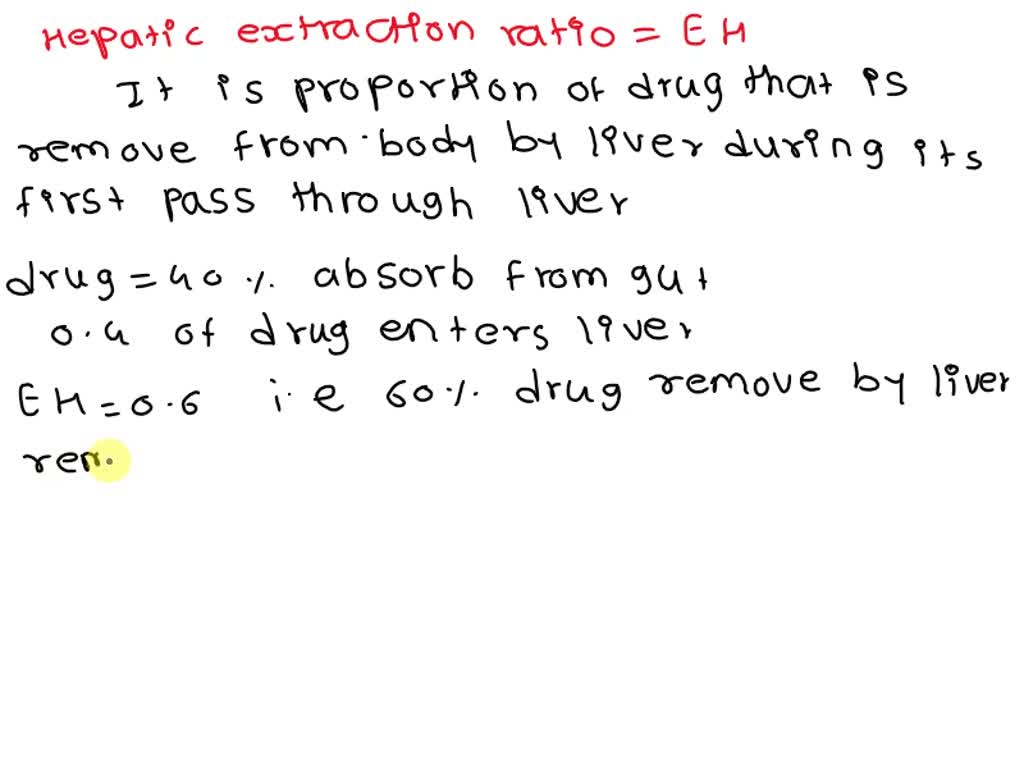 Hepatic extraction ratio = EH
It is proportion of drug that is
remove from body by liver during its
first pass through liver
drug = 40 % absorb from gut
0.4 of drug enters liver
EH = 0.6 i.e 60 % drug remove by liver
rem